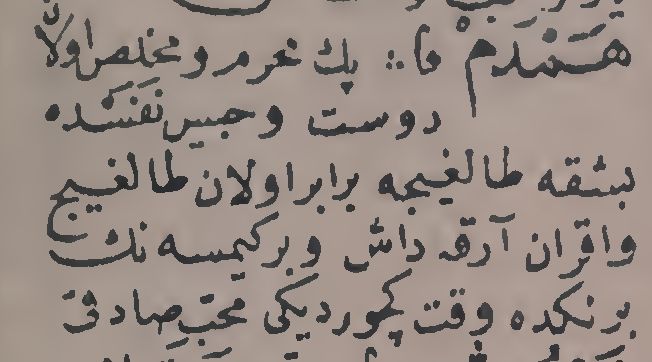 هـمـدم فا: پك محرم ومخلص اولان
دوست وحبيب نفسنده
بشقه طالغيجه برابر اولان طالغيج
واقران آرقه داش وبر كيمسه نك
بر نكده وقت كچورديكى محب صادق